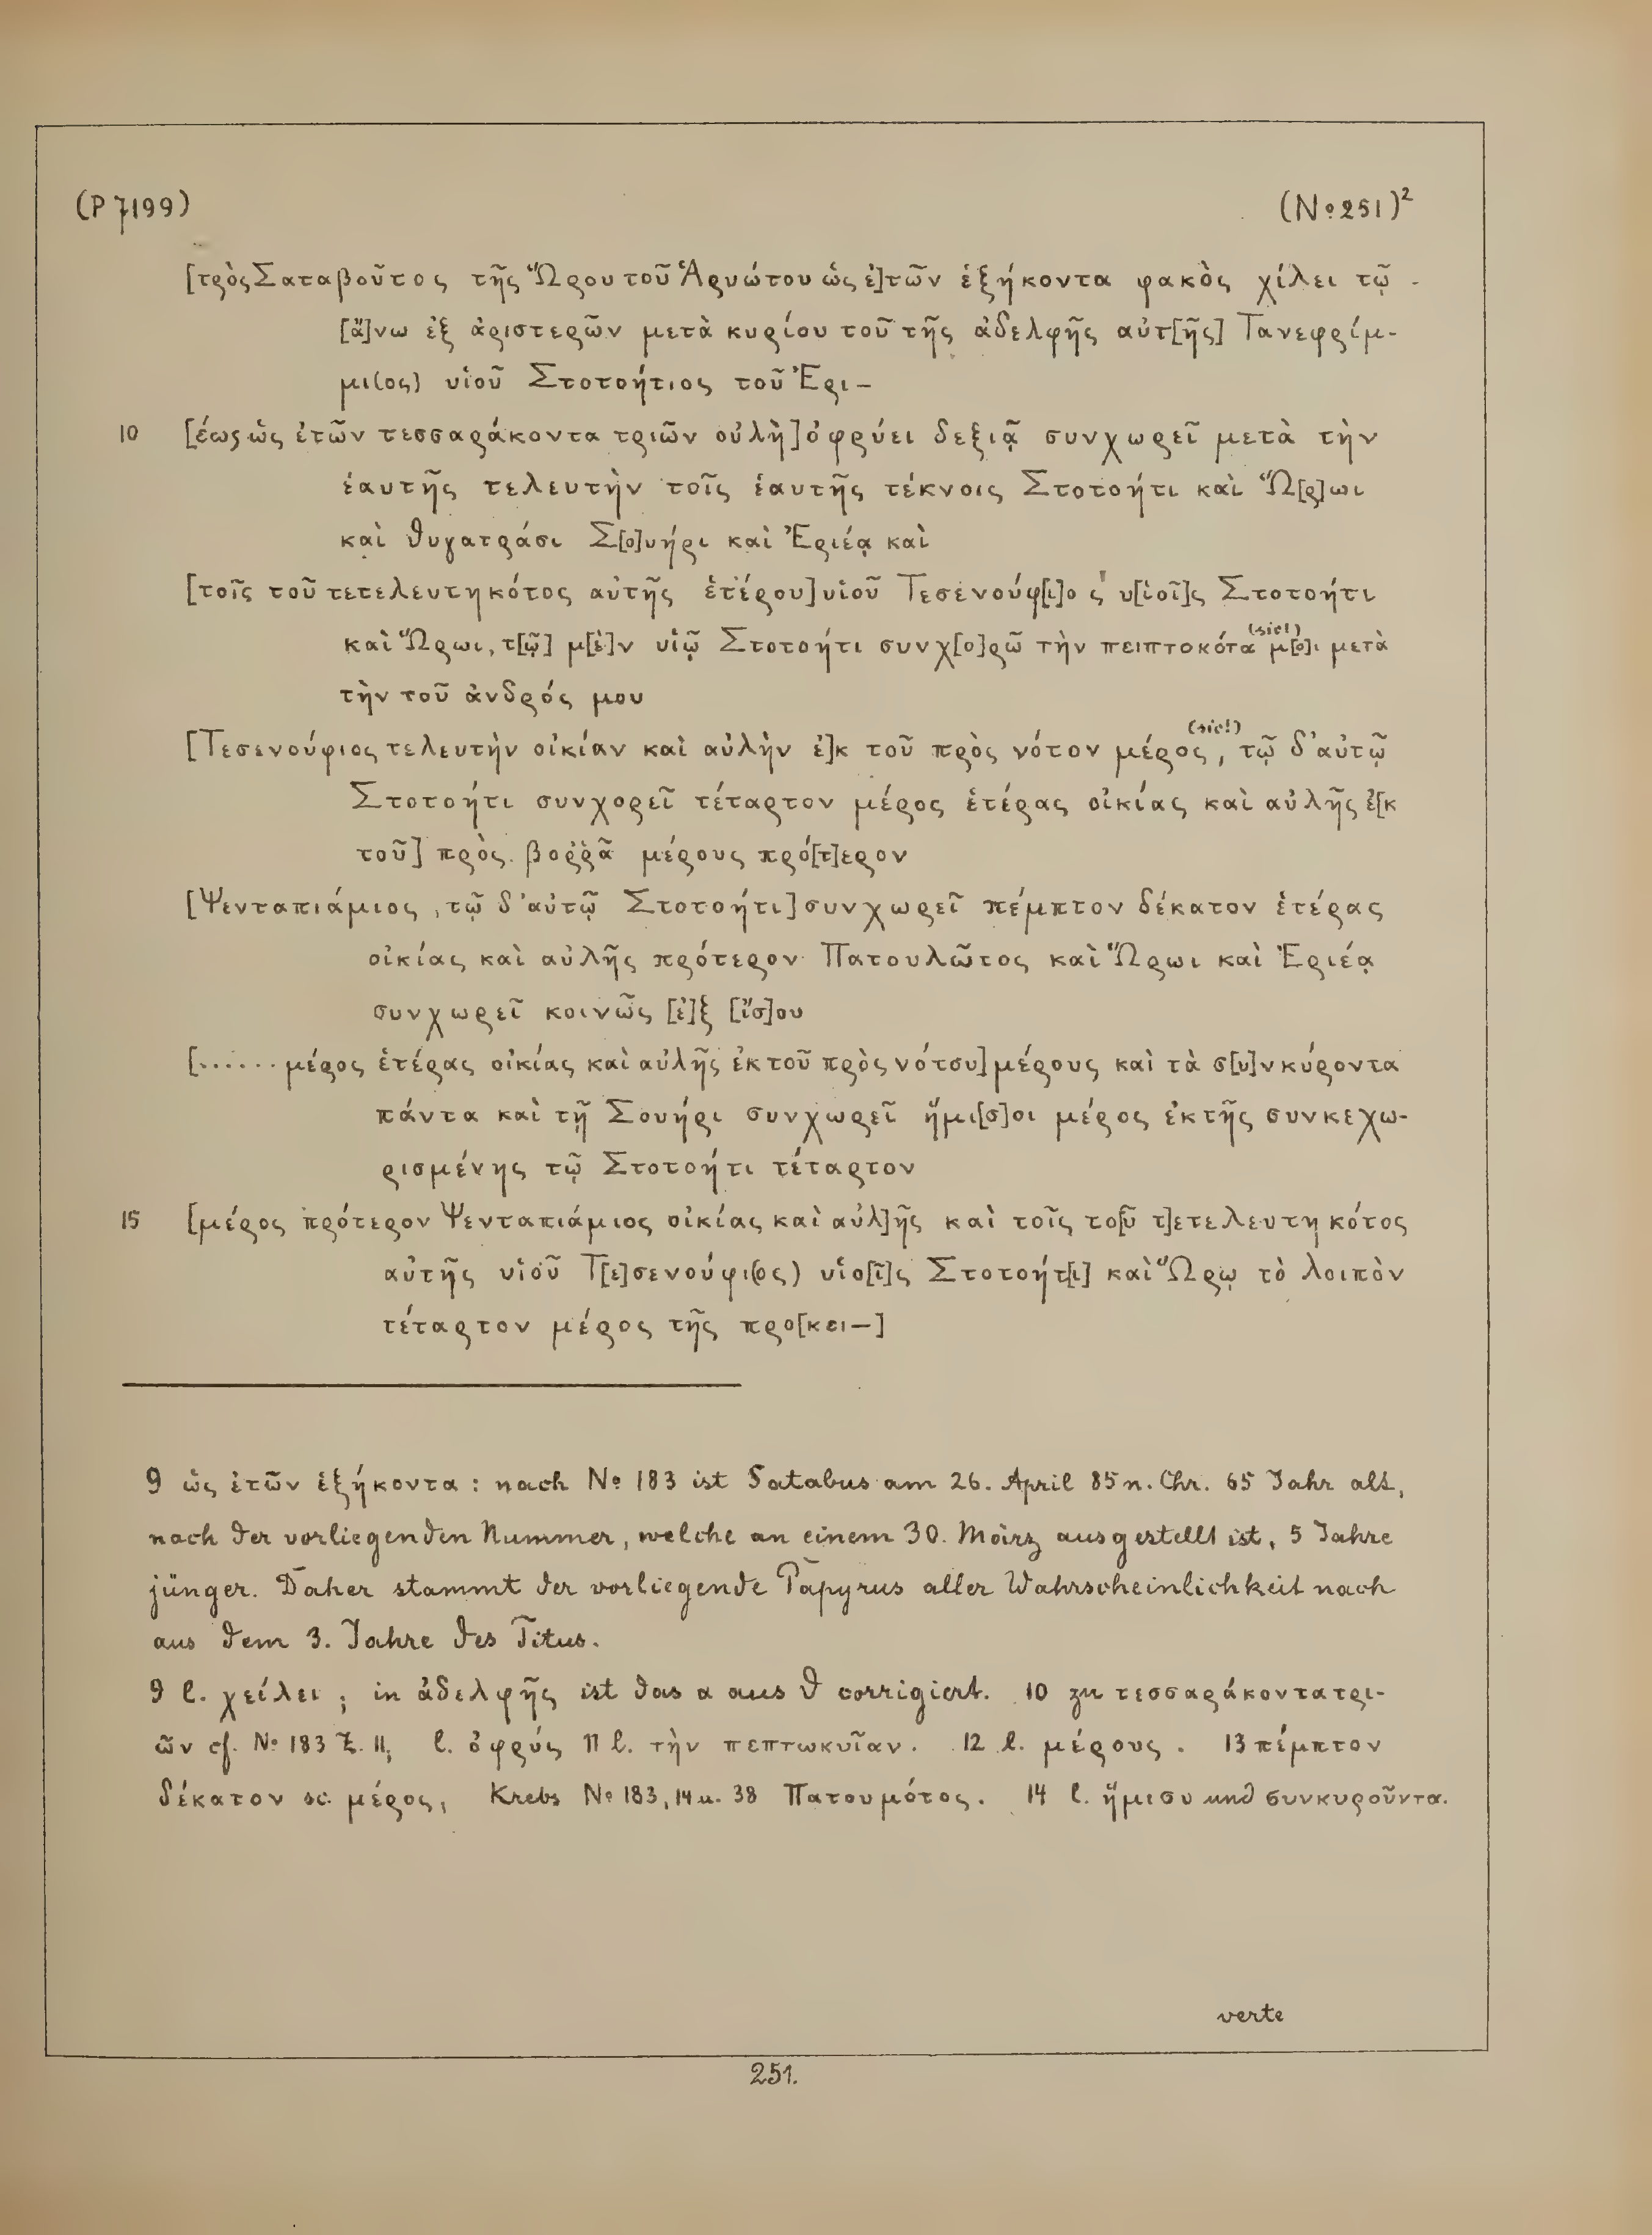 (P 7199) (No 251)²
[τρὸς Σαταβοῦτος τῆς Ὥρου τοῦ Ἁρυώτου ὡς ἐ]τῶν ἑξήκοντα φακὸς χίλει τῷ
[ἄ]νω ἐξ ἀριστερῶν μετὰ κυρίου τοῦ τῆς ἀδελφῆς αὐτ[ῆς] Τανεφρίμ-
μι(ος) υἱοῦ Στοτοήτιος τοῦ Ἑρι-
10 [έως ὡς ἐτῶν τεσσαράκοντα τριῶν οὐλὴ] ὀφρύει δεξιᾷ συνχωρεῖ μετὰ τὴν
ἑαυτῆς τελευτὴν τοῖς ἑαυτῆς τέκνοις Στοτοήτι καὶ Ὥ[ρ]ωι
καὶ θυγατράσι Σ[ο]υήρι καὶ Ἑριέᾳ καὶ
[τοῖς τοῦ τετελευτηκότος αὐτῆς ἑτέρου] υἱοῦ Τεσενούφ[ι]ος υ[ἱοῖ]ς Στοτοήτι
καὶ Ὥρωι, τ[ῷ] μ[ὲ]ν υἱῷ Στοτοήτι συνχ[ο]ρῶ τὴν πειπτοκότα (sic!) μ[ο]ι μετὰ
τὴν τοῦ ἀνδρός μου
[Τεσενούφιος τελευτὴν οἰκίαν καὶ αὐλὴν ἐ]κ τοῦ πρὸς νότον μέρος (sic!), τῷ δ'αὐτῷ
Στοτοήτι συνχορεῖ τέταρτον μέρος ἑτέρας οἰκίας καὶ αὐλῆς ἐ[κ
τοῦ] πρὸς βορρᾶ μέρους πρό[τ]ερον
[Ψενταπιάμιος, τῷ δ'αὐτῷ Στοτοήτι] συνχωρεῖ πέμπτον δέκατον ἑτέρας
οἰκίας καὶ αὐλῆς πρότερον Πατουλῶτος καὶ Ὥρωι καὶ Ἑριέᾳ
συνχωρεῖ κοινῶς [ἐ]ξ [ἴσ]ου
[...... μέρος ἑτέρας οἰκίας καὶ αὐλῆς ἐκ τοῦ πρὸς νότου] μέρους καὶ τὰ σ[υ]νκύροντα
πάντα καὶ τῇ Σουήρι συνχωρεῖ ἥμι[σ]οι μέρος ἐκ τῆς συνκεχω-
ρισμένης τῷ Στοτοήτι τέταρτον
15 [μέρος πρότερον Ψενταπιάμιος οἰκίας καὶ αὐλ]ῆς καὶ τοῖς το[ῦ τ]ετελευτηκότος
αὐτῆς υἱοῦ Τ[ε]σενούφι(ος) υἱο[ῖ]ς Στοτοήτ[ι] καὶ Ὥρῳ τὸ λοιπὸν
τέταρτον μέρος τῆς προ[κει-]
9 ὡς ἐτῶν ἑξήκοντα : nach No 183 ist Satabus am 26. April 85 n. Chr. 65 Jahr alt,
nach der vorliegenden Nummer, welche an einem 30. März ausgestellt ist, 5 Jahre
jünger. Daher stammt der vorliegende Papyrus aller Wahrscheinlichkeit nach
aus dem 3. Jahre des Titus.
9 l. χείλει ; in ἀδελφῆς ist das α aus ϑ corrigiert. 10 zu τεσσαράκοντα τρι-
ῶν cf. No 183 Z. 11, l. ὀφρύς 11 l. τὴν πεπτωκυῖαν. 12 l. μέρους. 13 πέμπτον
δέκατον sc. μέρος, Krebs No 183, 14 u. 38 Πατουμότος. 14 l. ἥμισυ und συνκυροῦντα.
verte
251.